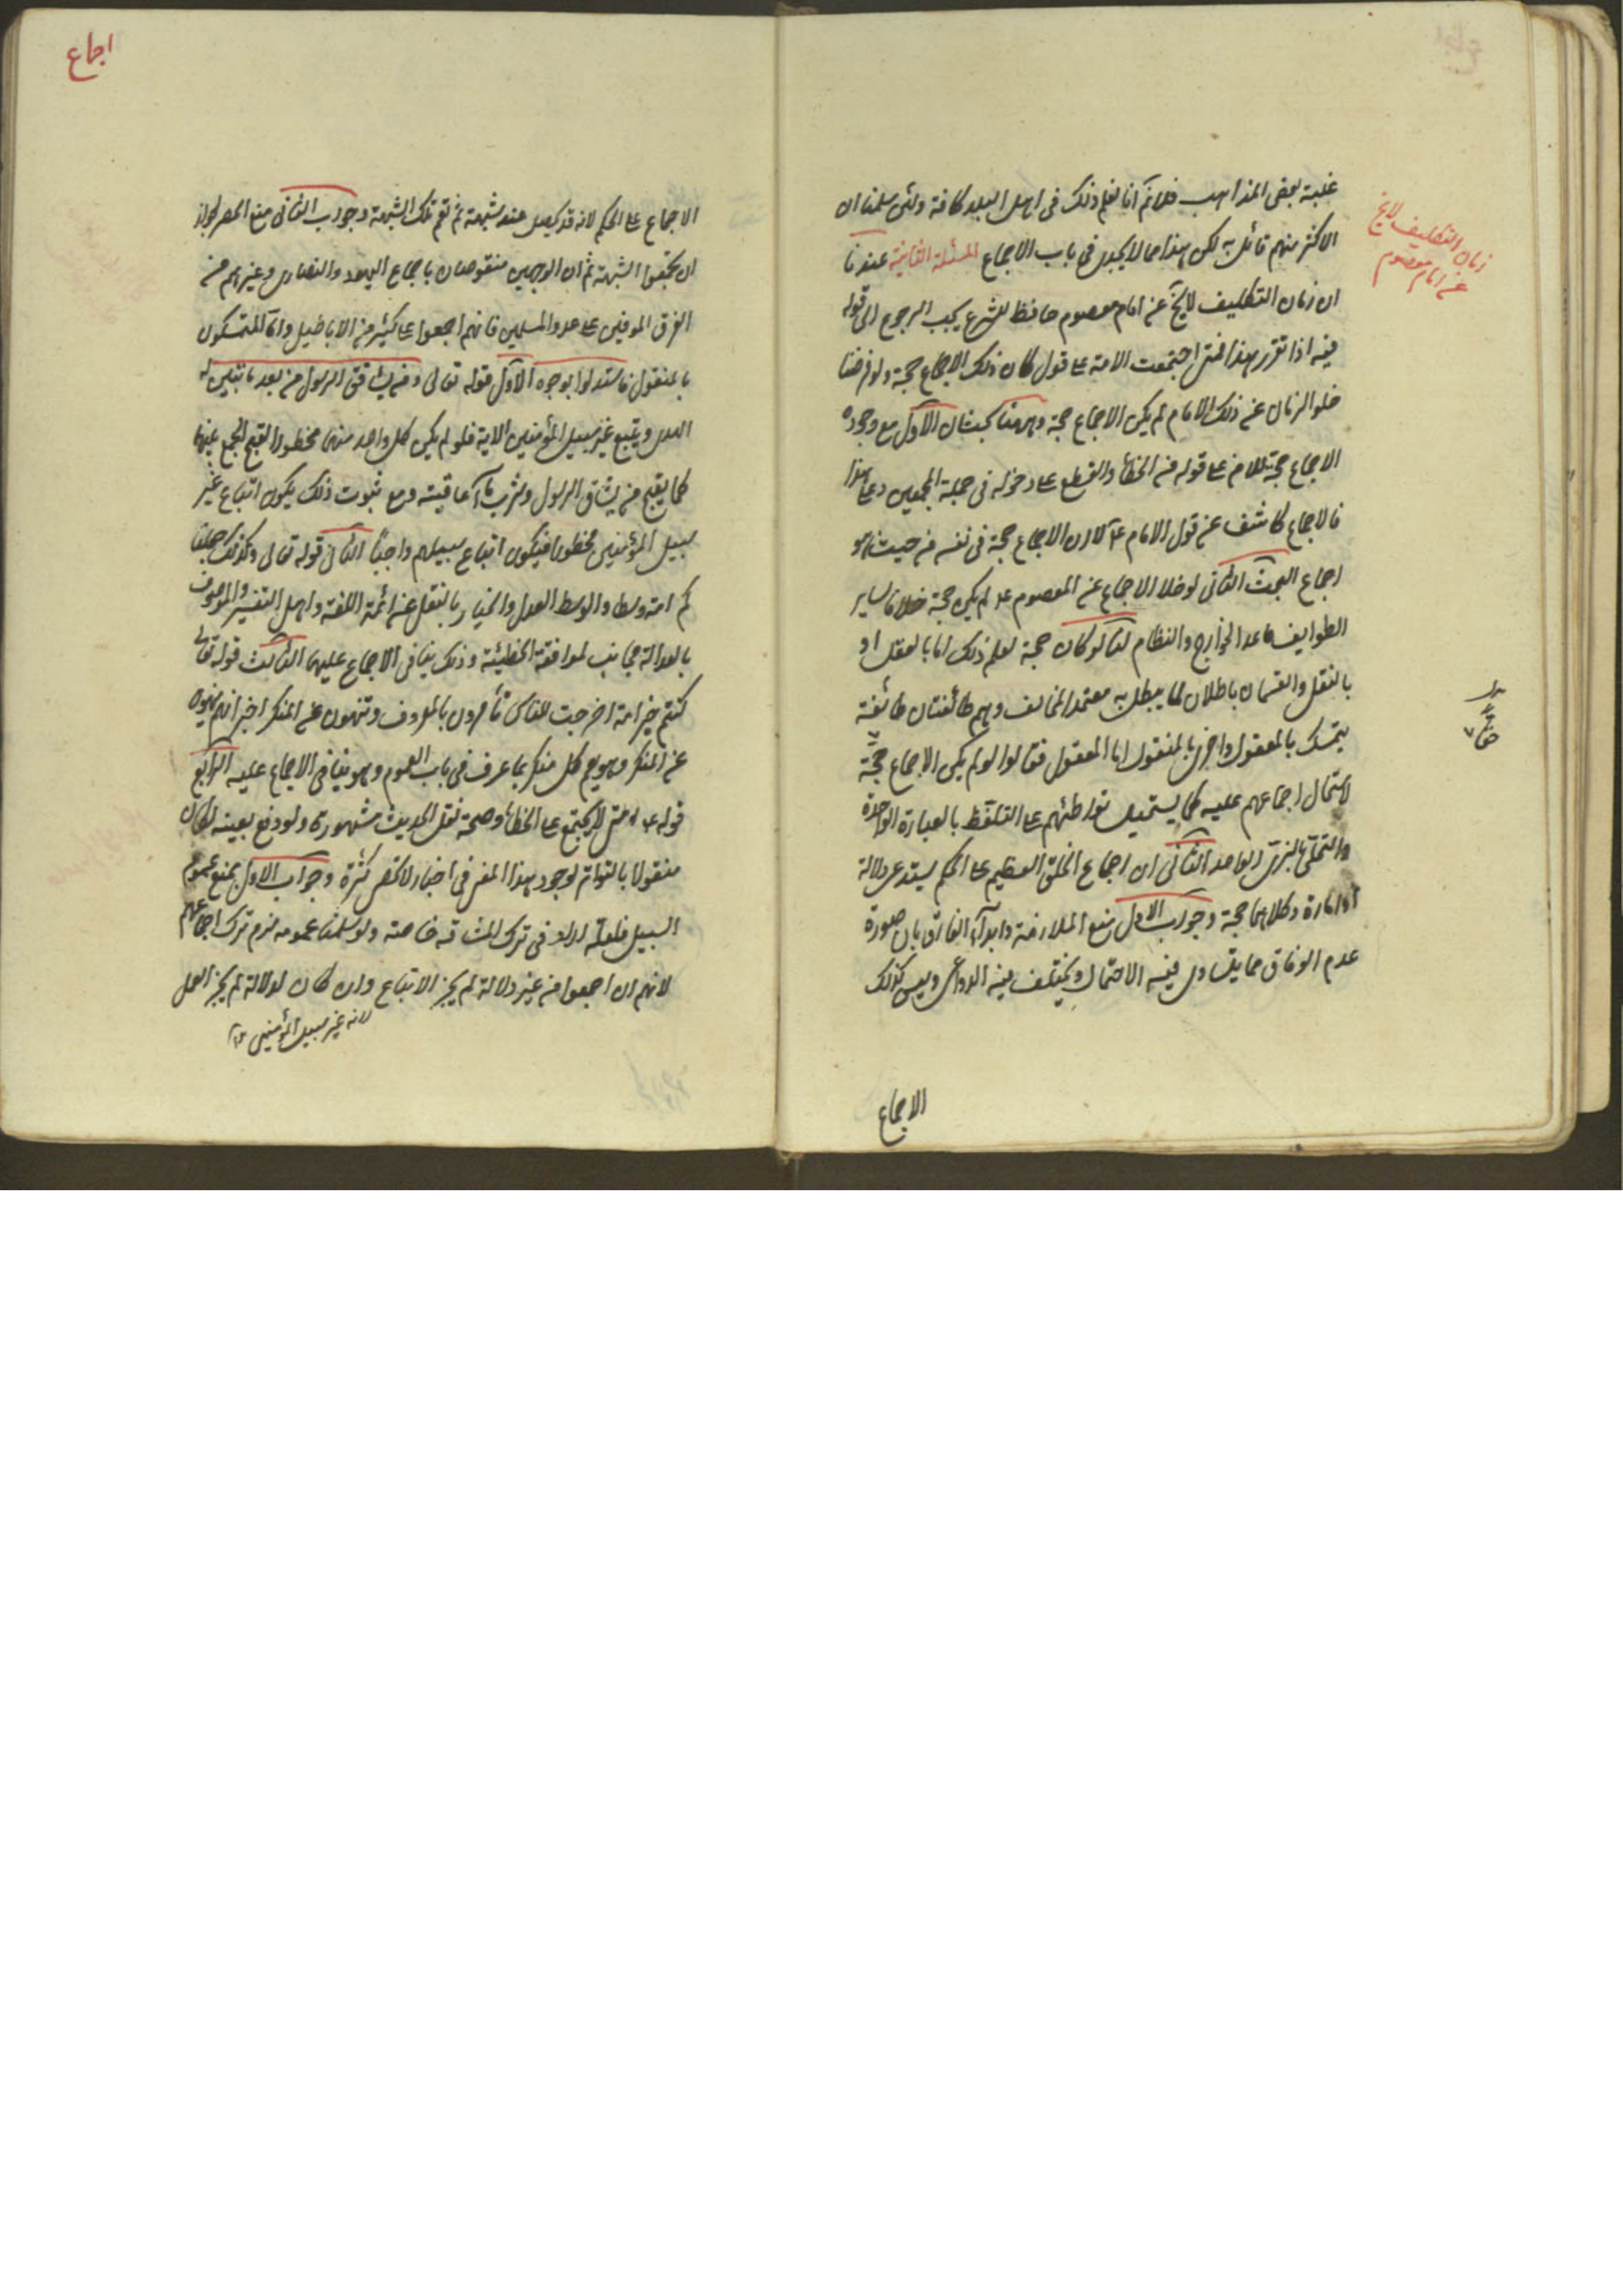 غلبة بعض المذاهب فلا ثم انا نعلم ذلك فى اهل البلد كافة ولئن سلمنا ان
الاكثر منهم قائل به لكن هذا مما لا يجدى فى باب الاجماع المسئلة الثانية عندنا
زمان التكليف لا يخ
عن امام معصوم
ان زمان التكليف لا يخ عن امام معصوم حافظ للشرع يجب الرجوع الى قوله
فيه اذا تقرر هذا فمتى اجتمعت الامة على قول كان ذلك الاجماع حجة ولو فرضنا
خلو الزمان عن ذلك الامام لم يكن الاجماع حجة وههنا بحثان الاول مع وجوده
الاجماع حجة للامن على قوله من الخطأ والقطع على دخوله فى جملة المجمعين وعلى هذا
فالاجماع كاشف عن قول الامام ع لا ان الاجماع حجة فى نفسه من حيث هو
اجماع البحث الثانى لو خلا الاجماع عن المعصوم ع لم يكن حجة خلافا لساير
الطوايف ما عدا الخوارج والنظام لنا لو كان حجة لعلم ذلك اما بالعقل او
بالنقل والقسمان باطلان لما يبطل به معتمد المخالف وهم طائفتان طائفة
يتمسك بالمعقول واخرى بالمنقول اما المعقول فقالوا لو لم يكن الاجماع حجة
لاستحال اجماعهم عليه كما يستحيل تواطئهم على التلفظ بالعبارة الواحدة
والتحلى بالزى الواحد الثانى ان اجماع الخلق العظيم على الحكم يستدعى دلالة
او امارة وكلاهما حجة وجواب الاول منع الملازمة وابداء الفارق بان صورة
عدم الوفاق مما يتساوى فيه الاحتمال ويختلف فيه الدواعى وليس كذلك
الاجماع
اجماع
الاجماع على الحكم لانه قد يحصل عند شبهة ثم تقع تلك الشبهة وجواب الثانى منع الحصر لجواز
ان يجتمعوا الشبهة ثم ان الوجهين منقوضان باجماع اليهود والنصارى وغيرهم من
الفرق الموفين على عدد المسلمين فانهم اجمعوا على كثير من الاباطيل واما المتمسكون
بالمنقول فاستدلوا بوجوه الاول قوله تعالى ومن يشاقق الرسول من بعد ما تبين له
الهدى ويتبع غير سبيل المؤمنين الاية فلو لم يكن كل واحد منهما محظورا لقبح الجمع بينهما
كما يقبح من يشاق الرسول وشرب ماء عاقبته ومع ثبوت ذلك يكون اتباع غير
سبيل المؤمنين محظورا فيكون اتباع سبيلهم واجبا الثانى قوله تعالى وكذلك جعلنا
كم امة وسطا والوسط العدل والخيار بالنقل عن ائمة اللغة واهل التفسير والموصوف
بالعدالة مجانب لموافقة الخطيئة وذلك ينافى الاجماع عليها الثالث قوله تعالى
كنتم خير امة اخرجت للناس تأمرون بالمعروف وتنهون عن المنكر اخبر انهم ينهون
عن المنكر وهو يعم كل منكر بما عرف فى باب العموم وهو ينافى الاجماع عليه الرابع
قوله ع امتى لا يجتمع على الخطأ وصحة نقل الحديث مشهورة ولو دفع بعينه لكان
منقولا بالتواتر لوجود هذا المعنى فى اخبار لا تحصى كثرة وجواب الاول بمنع عموم
السبيل فلعله اراد فى ترك المشاقة خاصة ولو سلمنا عمومه لزم ترك اجماعهم
لانهم ان اجمعوا من غير دلالة لم يجز الاتباع وان كان لدلالة لم يجز العمل
لانه غير سبيل المؤمنين